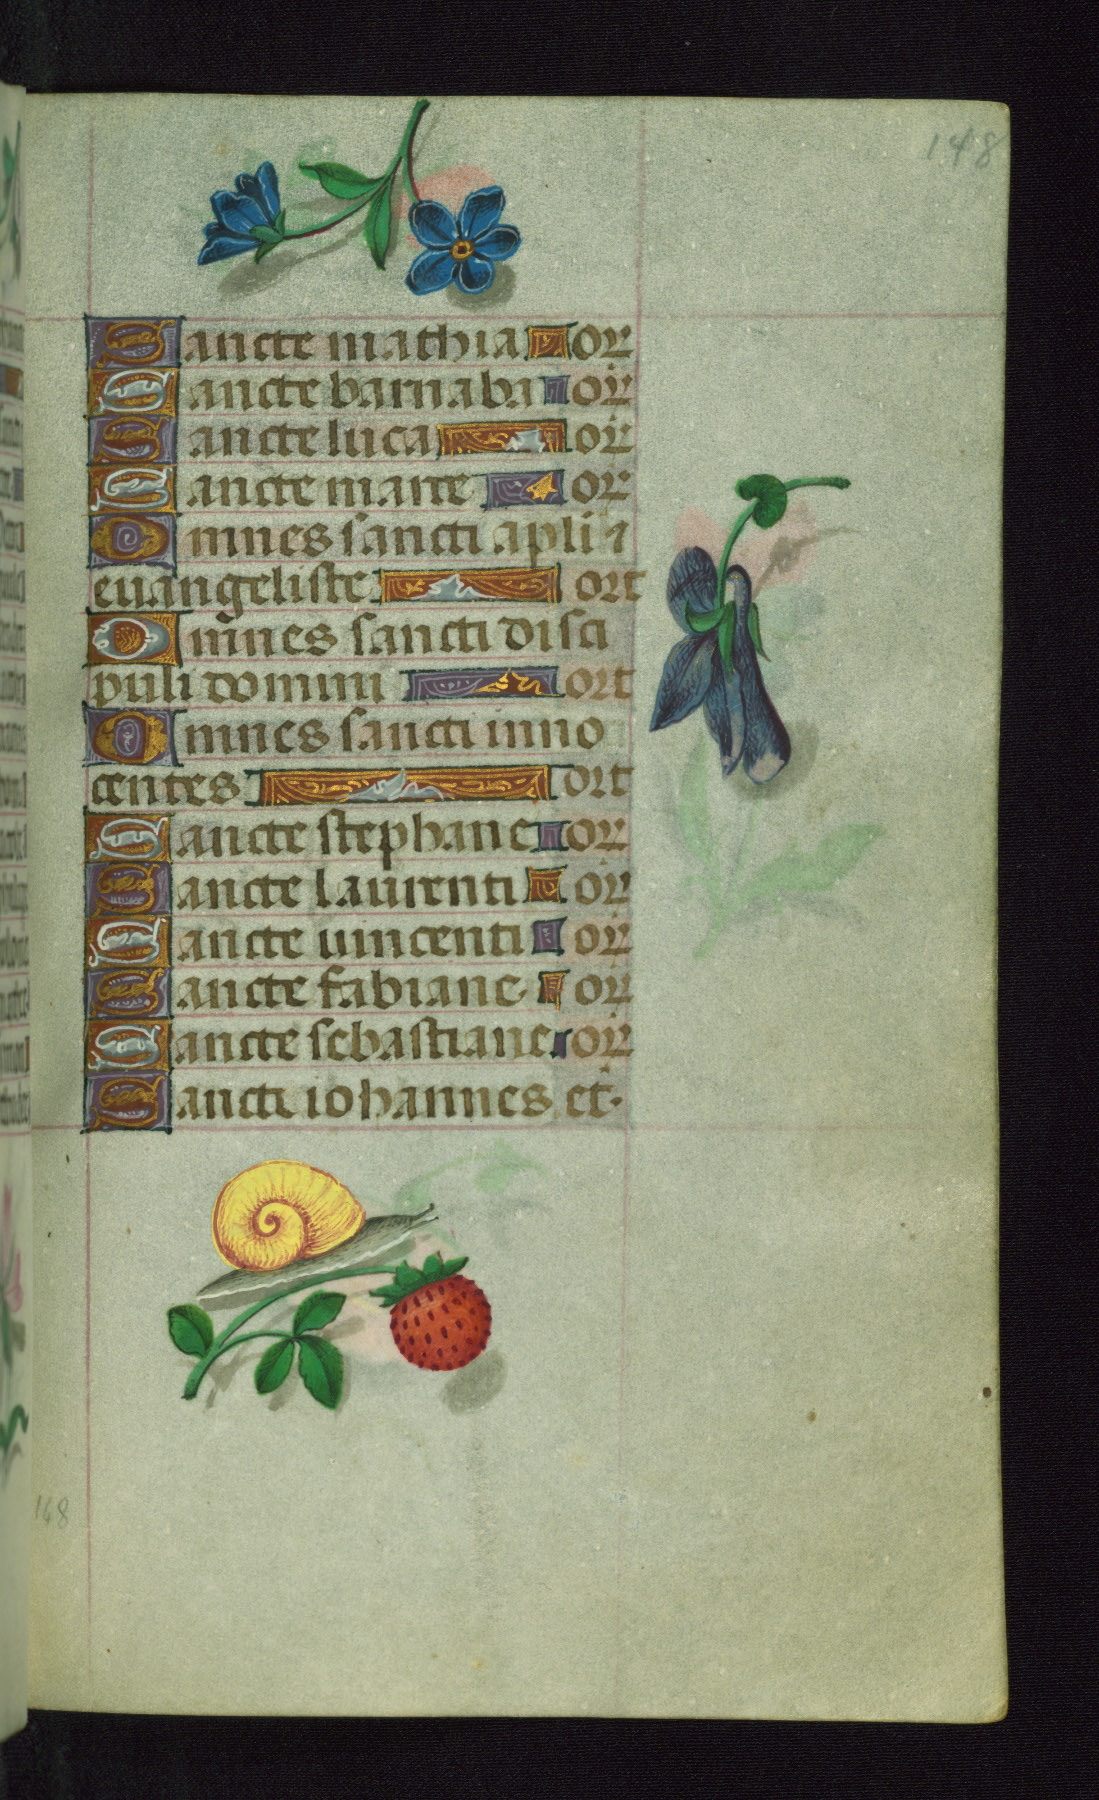 148
Sancte mathia or
Sancte barnaba or
Sancte luca or
Sancte marce or
Omnes sancti apli ⁊
euangeliste ort
Omnes sancti disci
puli domini ort
Omnes sancti inno
centes ort
Sancte stephane or
Sancte laurenti or
Sancte vincenti or
Sancte fabiane or
Sancte sebastiane or
Sancti iohannes et
148